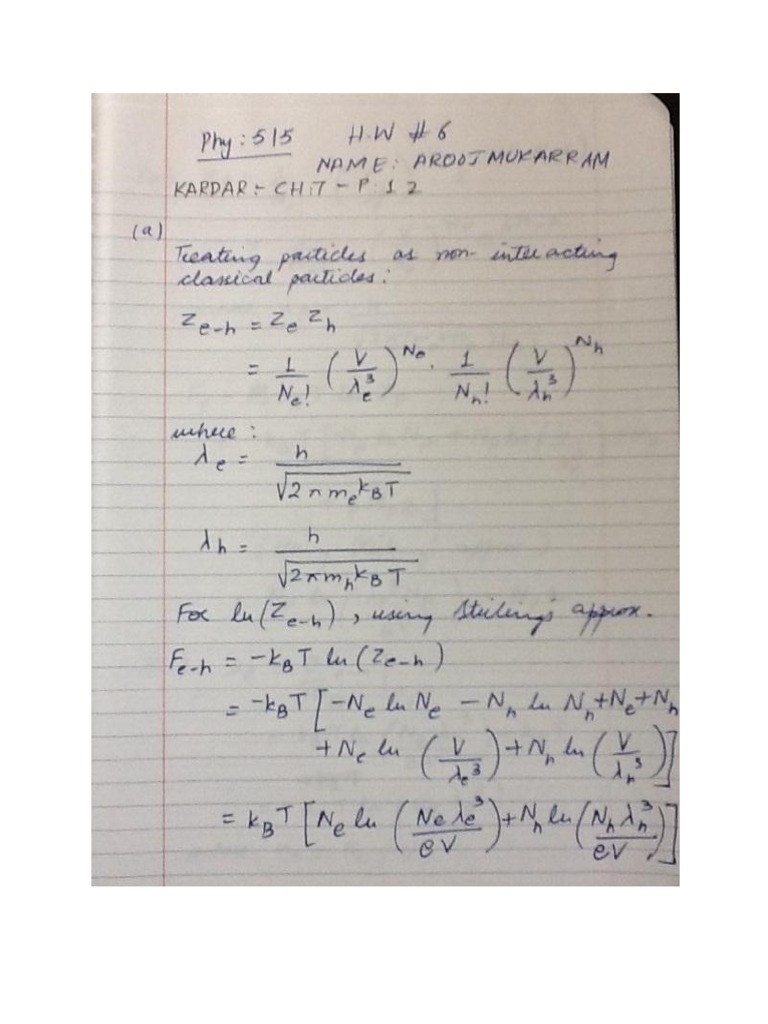 Phy: 515 H.W # 6
NAME: AROOJ MUKARRAM
KARDAR:- CH:7 - P:12
(a)
Treating particles as non-interacting
classical particles:
Z_{e-h} = Z_e Z_h
= \frac{1}{N_e!} (\frac{V}{λ_e^3})^{N_e} . \frac{1}{N_h!} (\frac{V}{λ_h^3})^{N_h}
where:
λ_e = \frac{h}{\sqrt{2πm_e k_B T}}
λ_h = \frac{h}{\sqrt{2πm_h k_B T}}
For ln(Z_{e-h}), using Stirling's approx.
F_{e-h} = -k_B T ln(Z_{e-h})
= -k_B T [-N_e ln N_e - N_h ln N_h + N_e + N_h
+ N_e ln (\frac{V}{λ_e^3}) + N_h ln (\frac{V}{λ_h^3})]
= k_B T [N_e ln (\frac{N_e λ_e^3}{eV}) + N_h ln (\frac{N_h λ_h^3}{eV})]